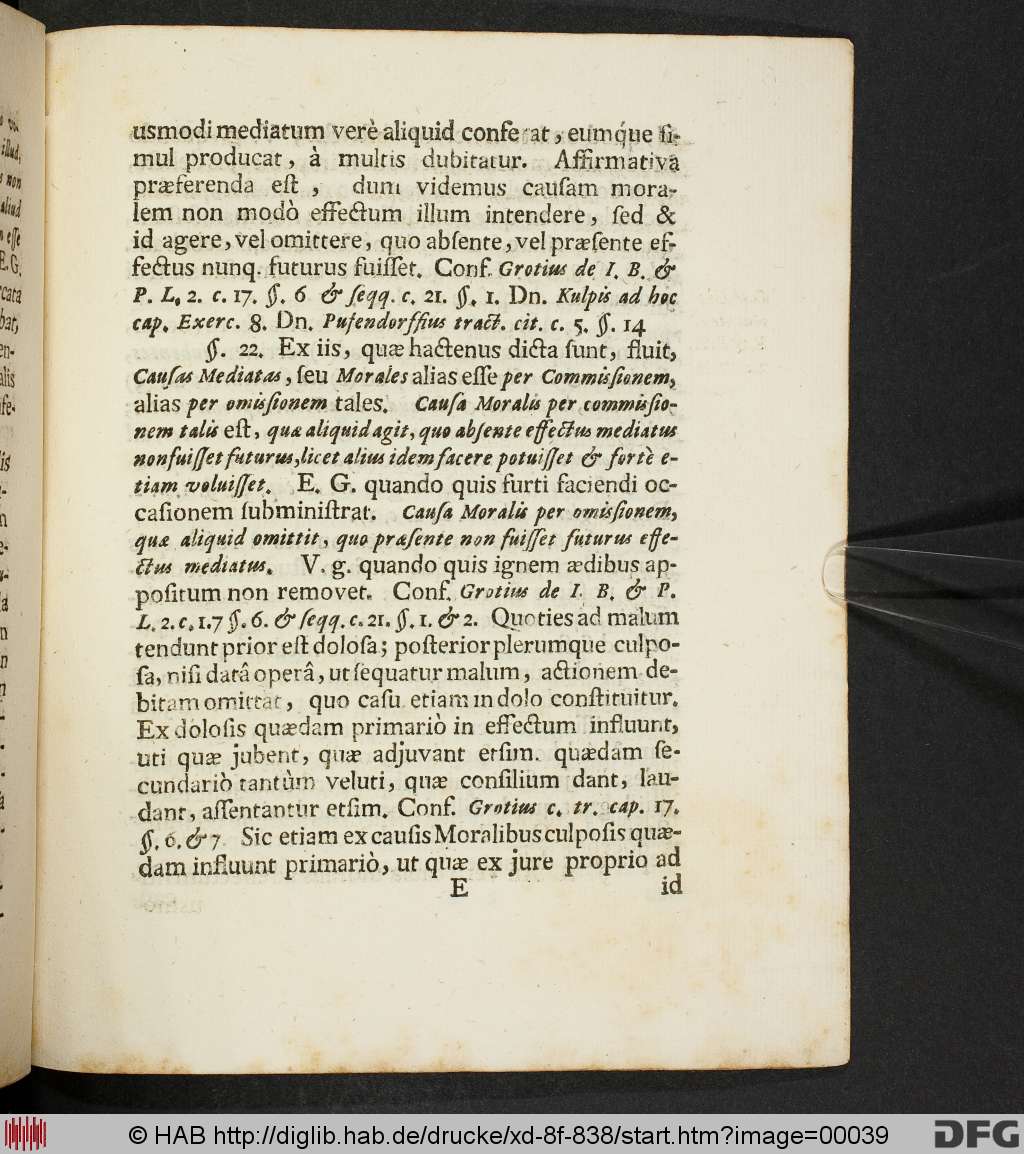 usmodi mediatum verè aliquid conferat, eumq́ue ſi-
mul producat, à multis dubitatur. Affirmativa
præferenda eſt, dum videmus cauſam mora-
lem non modò effectum illum intendere, ſed &
id agere, vel omittere, quo abſente, vel præſente ef-
fectus nunq. futurus fuiſſet. Conf. Grotius de I. B. &
P. L. 2. c. 17. §. 6 & ſeqq. c. 21. §. 1. Dn. Kulpis ad hoc
cap. Exerc. 8. Dn. Pufendorffius tract. cit. c. 5. §. 14
§. 22. Ex iis, quæ hactenus dicta ſunt, fluit,
Cauſas Mediatas, ſeu Morales alias eſſe per Commiſſionem,
alias per omiſſionem tales. Cauſa Moralis per commiſſio-
nem talis eſt, quæ aliquid agit, quo abſente effectus mediatus
non fuiſſet futurus, licet alius idem facere potuiſſet & fortè e-
tiam voluiſſet. E. G. quando quis furti faciendi oc-
caſionem ſubminiſtrat. Cauſa Moralis per omiſſionem,
quæ aliquid omittit, quo præſente non fuiſſet futurus effe-
ctus mediatus. V. g. quando quis ignem ædibus ap-
poſitum non removet. Conf. Grotius de I. B. & P.
L. 2. c. 1.7 §. 6. & ſeqq. c. 21. §. 1. & 2. Quoties ad malum
tendunt prior eſt doloſa; poſterior plerumque culpo-
ſa, niſi datâ operâ, ut ſequatur malum, actionem de-
bitam omittat, quo caſu etiam in dolo conſtituitur.
Ex doloſis quædam primariò in effectum influunt,
uti quæ jubent, quæ adjuvant etſim. quædam ſe-
cundariò tantùm veluti, quæ conſilium dant, lau-
dant, aſſentantur etſim. Conf. Grotius c. tr. cap. 17.
§. 6. & 7 Sic etiam ex cauſis Moralibus culpoſis quæ-
dam influunt primariò, ut quæ ex jure proprio ad
E id
© HAB http://diglib.hab.de/drucke/xd-8f-838/start.htm?image=00039
DFG